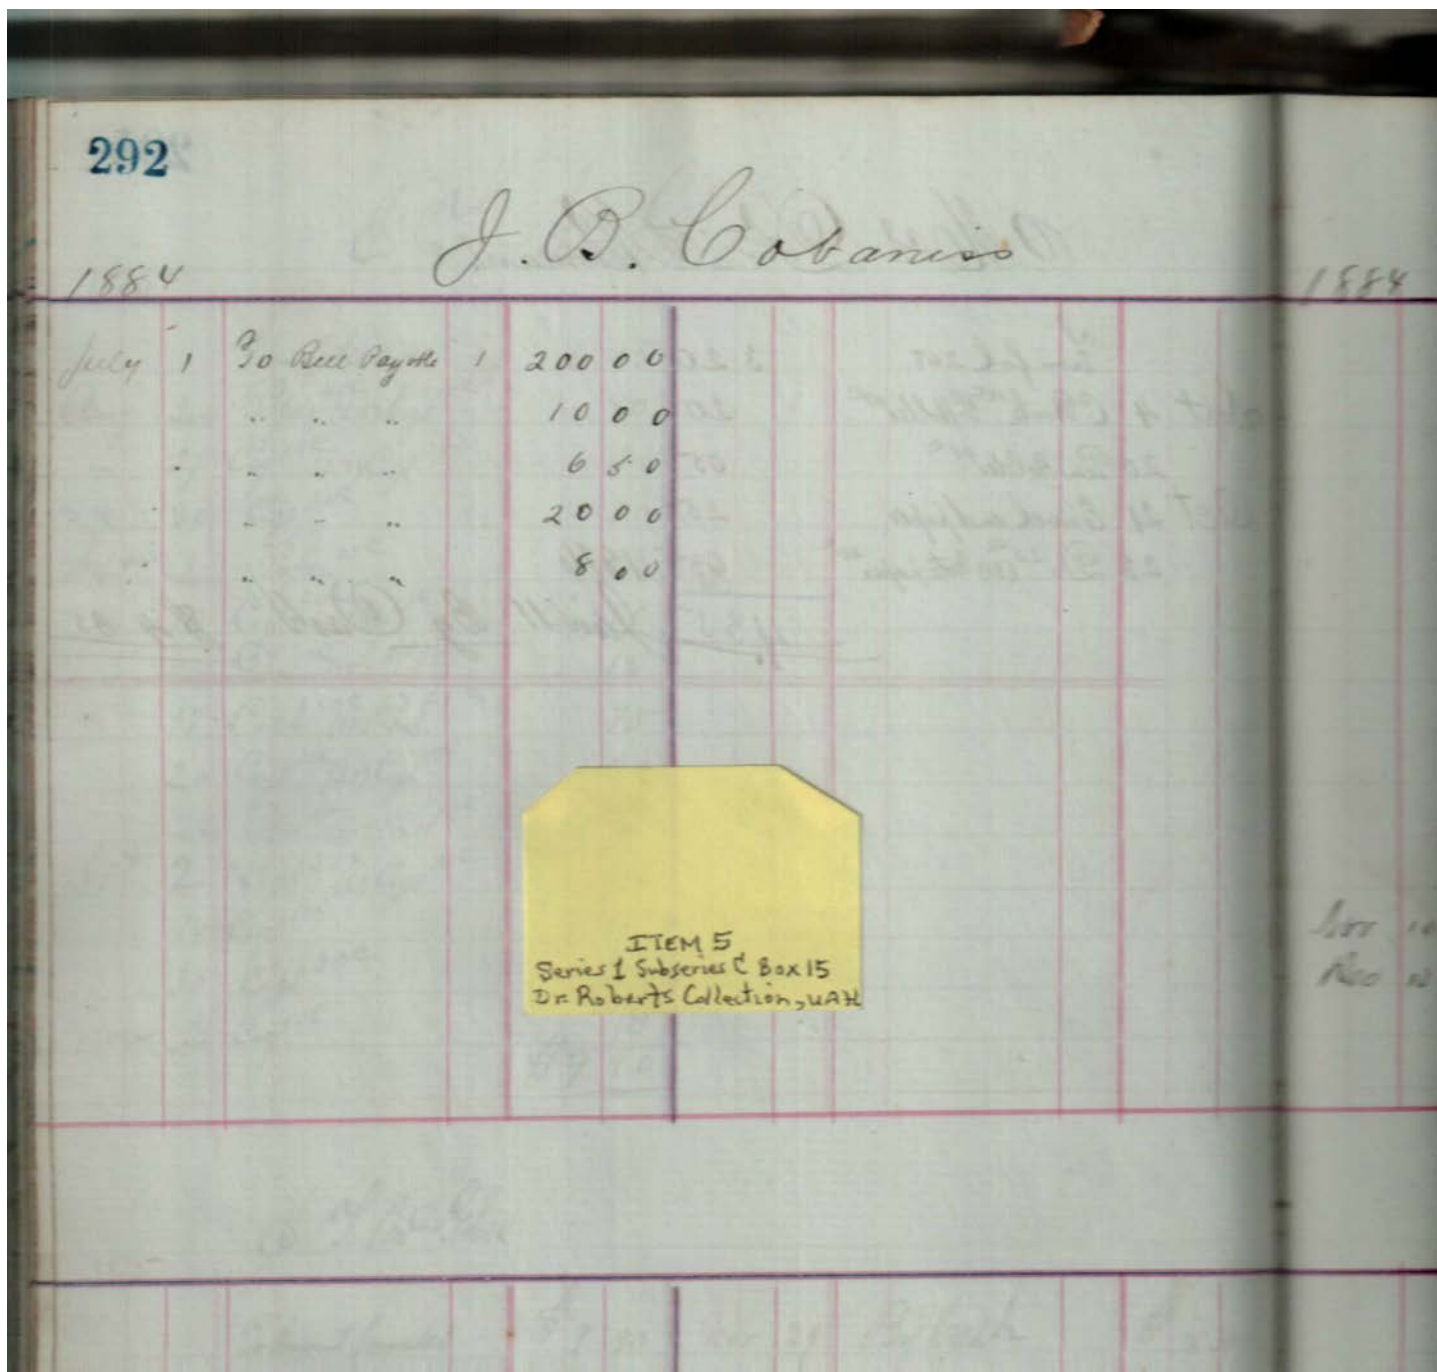 292
J. B. Cobaniss
1884
1884
July 1 To Bill Payable 1 200 00
" " " 10 00
" " " " 6 50
" " " " 20 00
" " " " 8 00
ITEM 5
Series 1 Subseries C Box 15
Dr. Roberts Collection, UAH
Nov 10